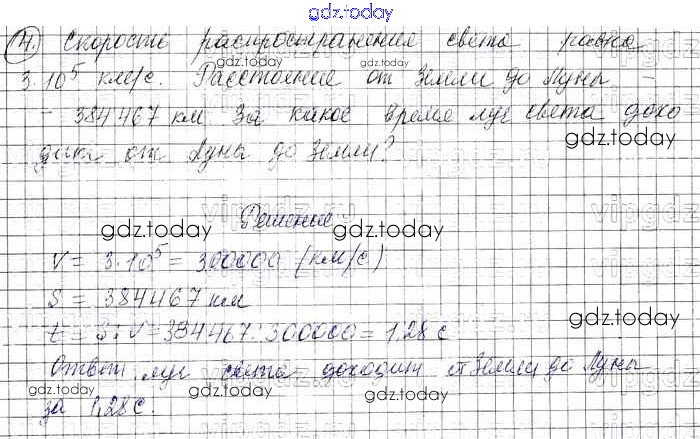 gdz.today
4. Скорость распространения света равна
3·10⁵ км/с. Расстояние от Земли до Луны –
– 384 467 км. За какое время луч света дохо
дит от Луны до Земли?
Решение
V = 3·10⁵ = 300000 (км/с)
S = 384467 км
t = S : V = 384467 : 300000 = 1,28 с
Ответ: луч света доходит от Земли до Луны
за 1,28 с.
gdz.today
gdz.today
gdz.today
gdz.today
gdz.today
gdz.today
gdz.today
gdz.today
gdz.today